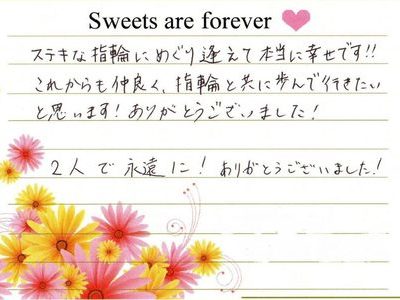 Sweets are forever
ステキな指輪にめぐり逢えて本当に幸せです!!
これからも仲良く、指輪と共に歩んで行きたい
と思います!ありがとうございました!
2人で永遠に!ありがとうございました!